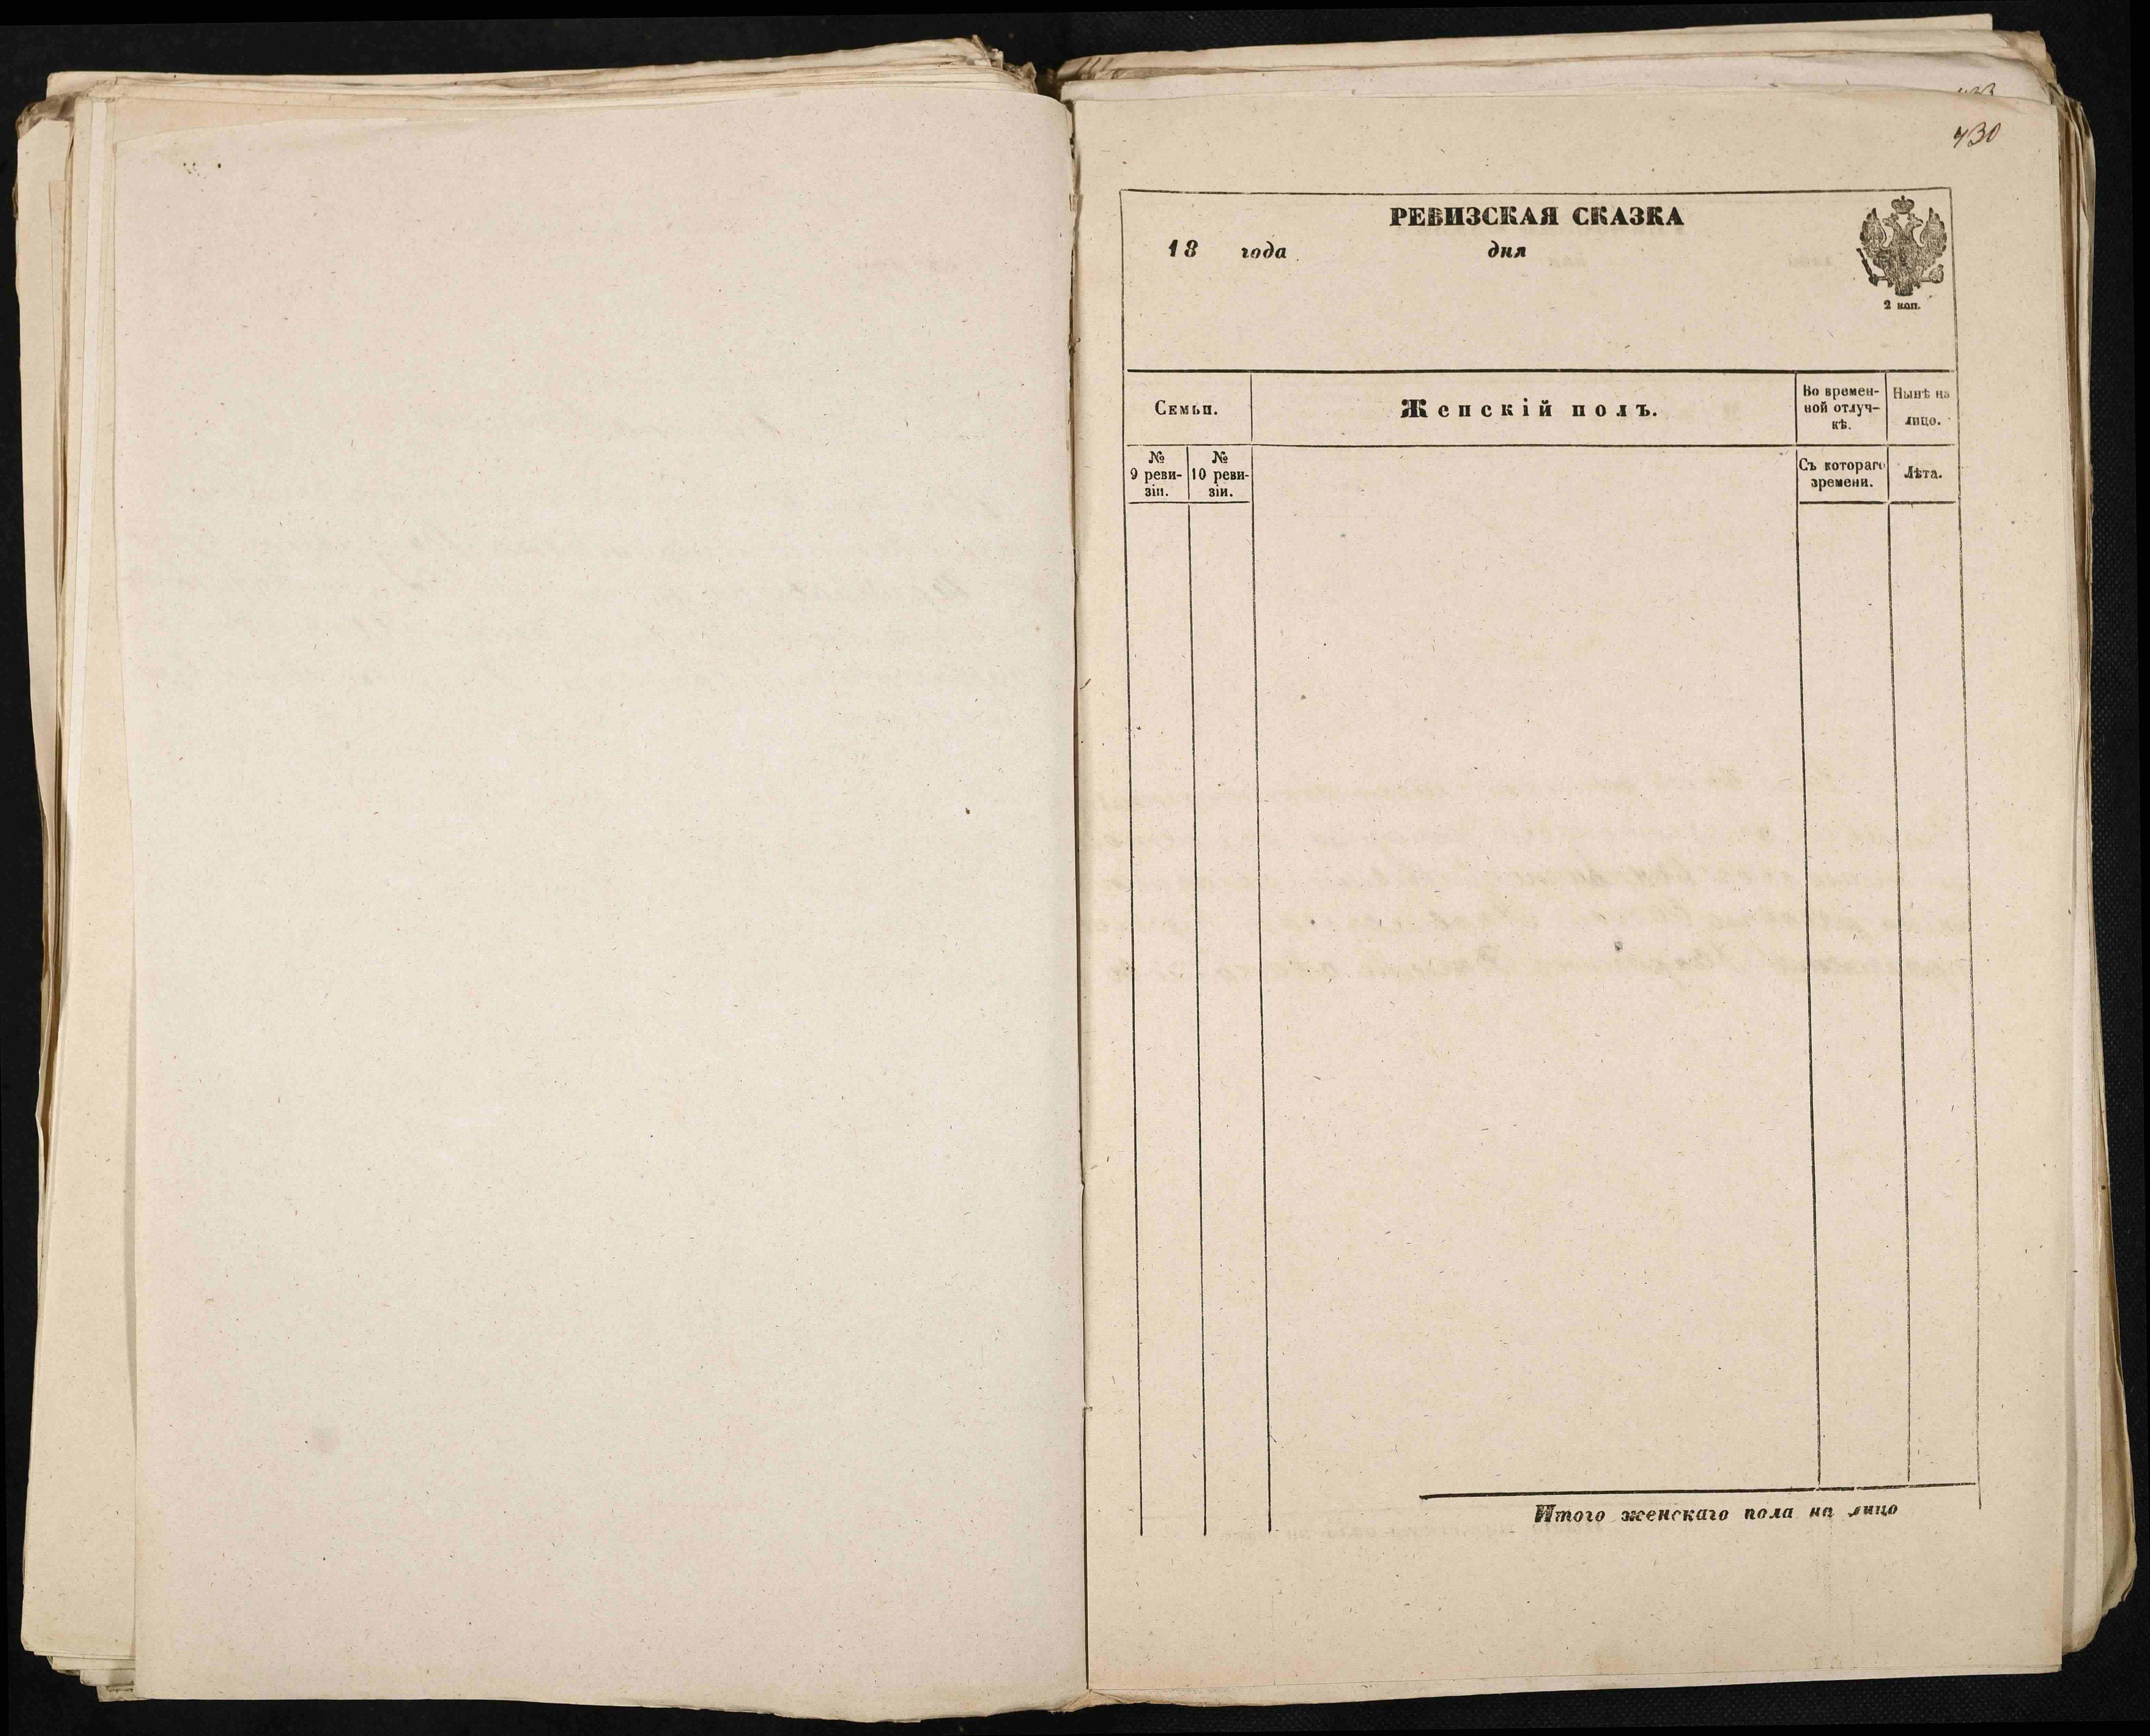 430
РЕВИЗСКАЯ СКАЗКА
18 года дня
2 коп.
Семьи. Женскій полъ. Во времен-
ной отлуч-
кѣ. Нынѣ на
лицо.
№
9 реви-
зіи. №
10 реви-
зіи. Съ котораго
времени. Лѣта.
Итого женскаго пола на лицо